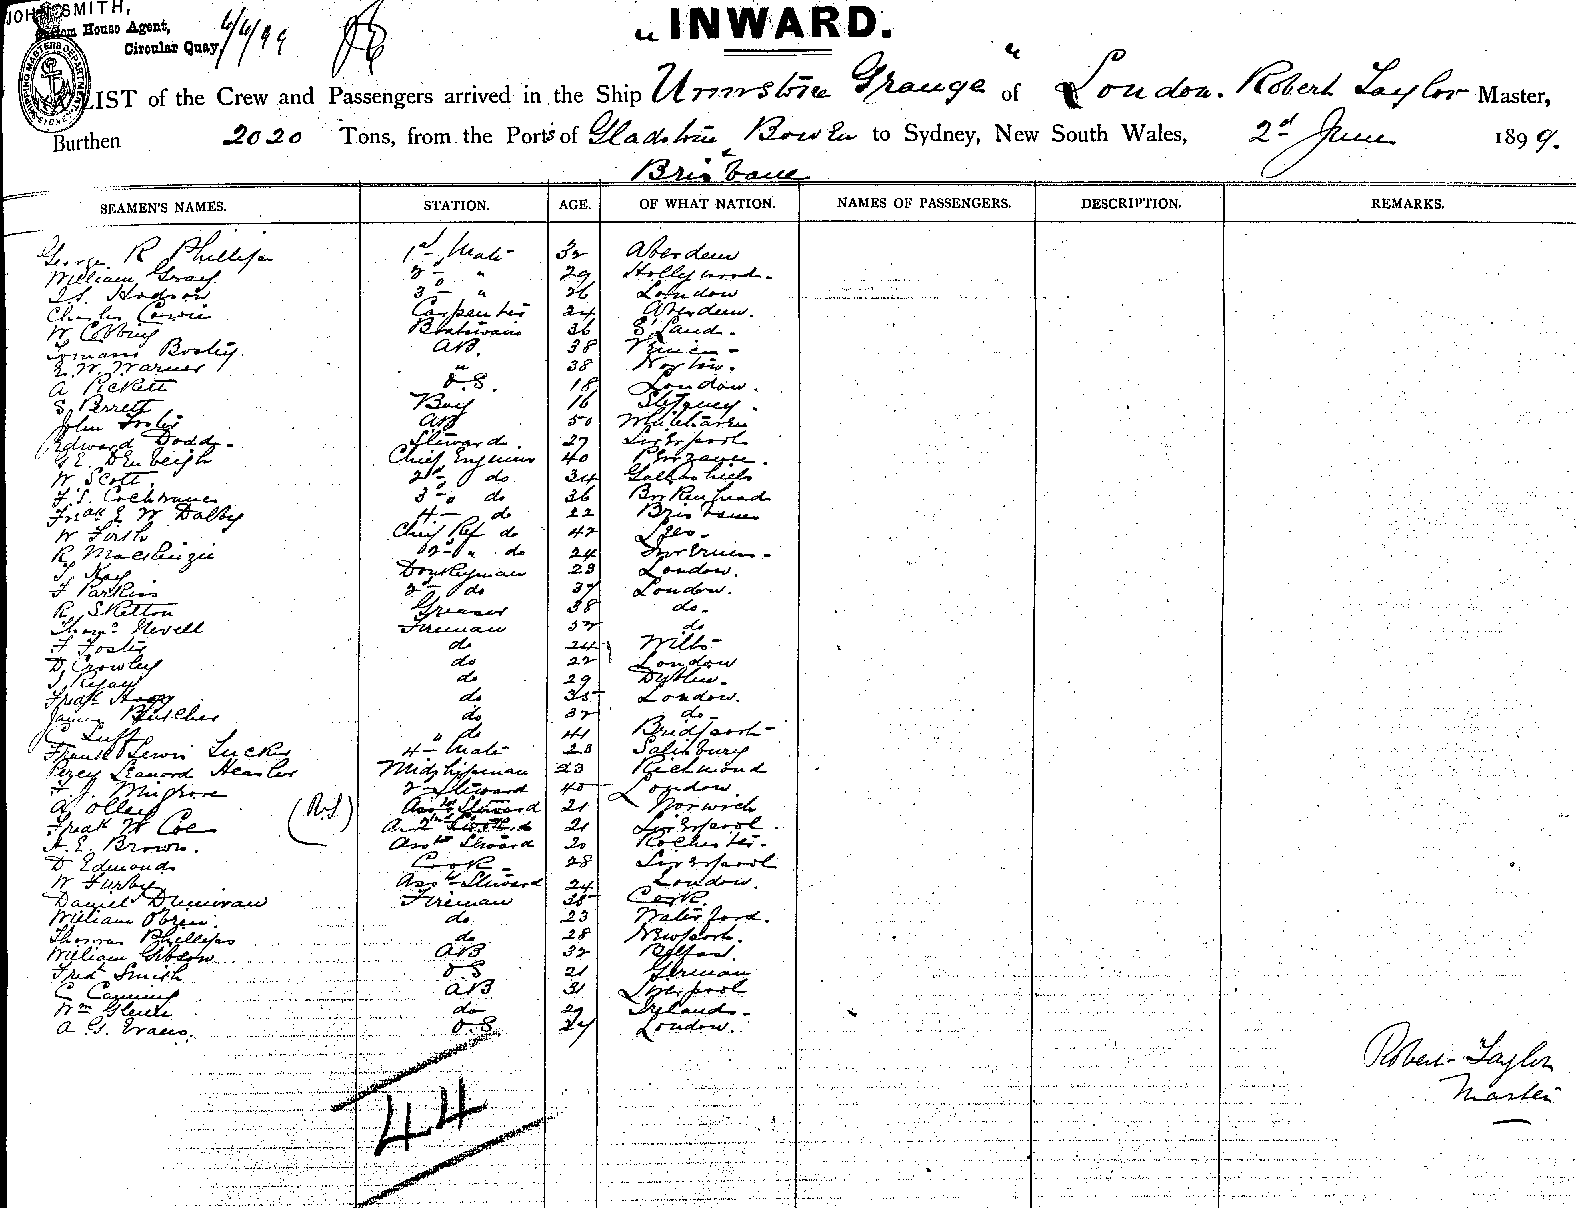 JOHN SMITH,
Custom House Agent,
Circular Quay,
„INWARD.
LIST of the Crew and Passengers arrived in the Ship Urmston Grange “ of London. Robert Taylor Master,
Burthen 2020 Tons, from the Ports of Gladstone Bowen to Sydney, New South Wales, 2d June 1899.
& Brisbane
SEAMEN'S NAMES. STATION. AGE. OF WHAT NATION. NAMES OF PASSENGERS. DESCRIPTION. REMARKS.
George R Phillips 1st Mate 32 Aberdeen
William Gray 2 " 29 Hollywood
Hodson 3 " 26 London
Charles Cowie Carpenter 24 Aberdeen.
W Boatswain 36 S'land.
Bosley AB. 38
E. W. Warner " 38
A Pickett O.S. 18 London.
S. Perrett Boy 16 Stepney.
John Foster AB 50 Whitehaven
Edward Dodd Steward. 27 Liverpool
G.E. Denbeigh Chief Engineer 40 Penzance.
W Scott 2nd do 34 Galashiels
J. S. Cochrane 3 do 36 Birkenhead
W Dalby 4 do 22 Brisbane
W Firth Chief Ref do 42
R. Mackenzie 2nd " do 24 Inverness
J. Kay Donkeyman 23 London.
F Parkins 2 do 37 London.
R. Skelton Greaser 38 do.
Thoms Newell Fireman 52 do
F Foster do 24 Wilts
D. Crowley do 22 London
J Regan do 29 Dublin.
Fredk do 35 London.
James Butcher do 32 do
C Luff " do 41 Bridport
Frank Lewis Tucker 4 Mate 20 Salisbury
Percy Leanord Midshipman 23 Richmond
F. J. Musgrove 2 Steward 40 London
A Olley (R.S.) Asst Steward 21 Norwich
Fredk W Coe 21 Liverpool.
H. E. Brown. Asst Steward 20 Rochester.
D Edmonds Cook 28 Liverpool
W Furby Asst Steward 24 London.
Daniel Dunnivan Fireman 35 Cork.
William Obrien do. 23 Waterford.
Thomas Phillips do 28 Newport.
William Gibson AB 32 Belfast.
Fred Smith OS 21 German
C Canning AB 31 Liverpool
Wm Glenn do 29 Ireland.
A G. Evans. O.S 24 London.
Robert Taylor
Master
44